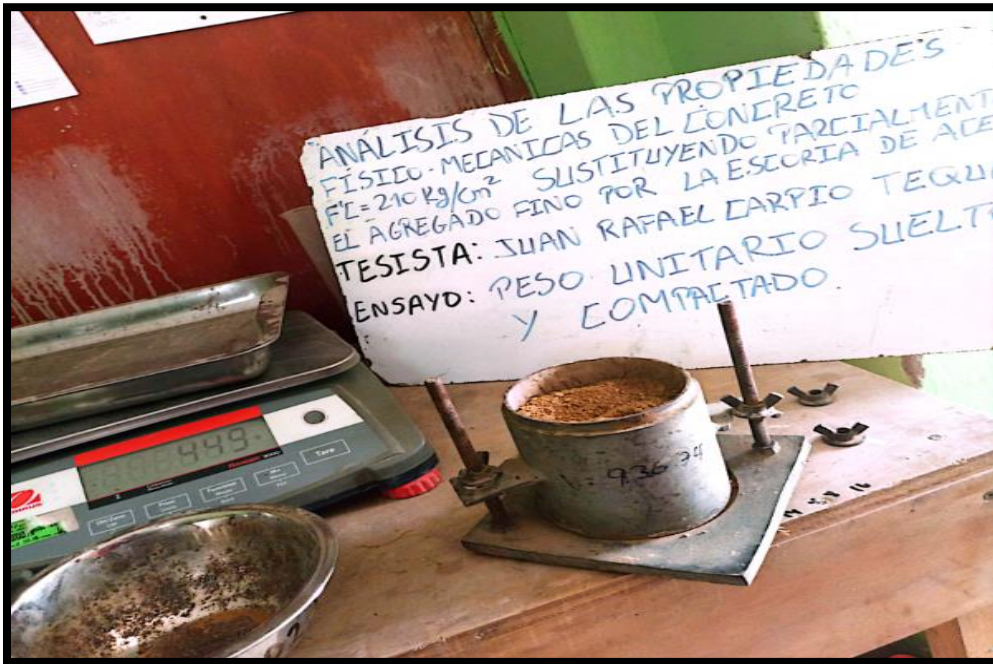 ANÁLISIS DE LAS PROPIEDADES
FÍSICO-MECANICAS DEL CONCRETO
F'C=210 Kg/cm² SUSTITUYENDO PARCIALMENT
EL AGREGADO FINO POR LA ESCORIA DE ACE
TESISTA: JUAN RAFAEL CARPIO TEQU
ENSAYO: PESO UNITARIO SUELT
Y COMPACTADO.
449
Tare